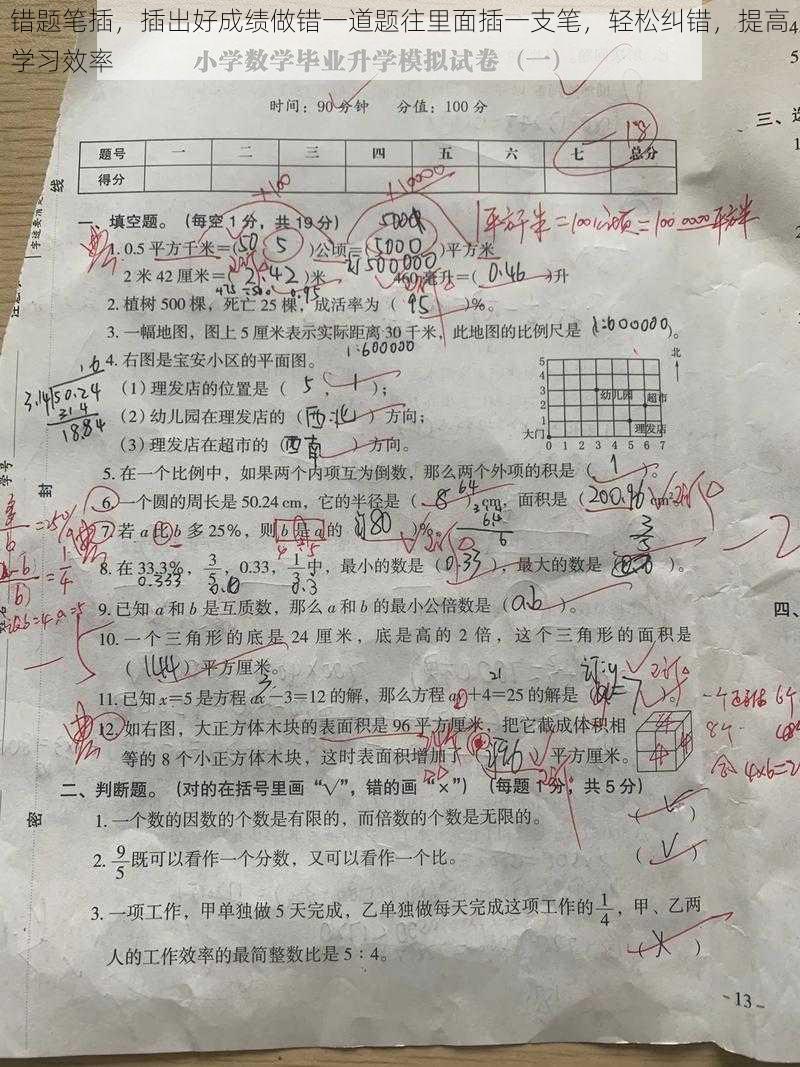 错题笔插，插出好成绩做错一道题往里面插一支笔，轻松纠错，提高
学习效率
小学数学毕业升学模拟试卷（一）
时间：90分钟 分值：100分
-18
题号 一 二 三 四 五 六 七 总分
得分
线
+100 +10000
一、填空题。（每空1分，共19分）
1平方千米=100公顷=1000000平方米
1. 0.5平方千米=(50 5)公顷=(5000)平方米
500000
2米42厘米=(2.42)米 460毫升=(0.46)升
2. 植树500棵，死亡25棵，成活率为（95）%。
3. 一幅地图，图上5厘米表示实际距离30千米，此地图的比例尺是（1:600000）。
1:600000
4. 右图是宝安小区的平面图。
（1）理发店的位置是（5，1）；
（2）幼儿园在理发店的（西北）方向；
（3）理发店在超市的（西南）方向。
3.14 50.24
31.4
18.84
北
5
4
3
2
1
幼儿园 超市
理发店
大门 0 1 2 3 4 5 6 7
学号
封
5. 在一个比例中，如果两个内项互为倒数，那么两个外项的积是（1）。
6. 一个圆的周长是50.24 cm，它的半径是（8）cm，面积是（200.96）cm²。
7. 若a比b多25%，则b是a的（80）%。
8. 在33.3%，3/5，0.33，1/3中，最小的数是（0.33），最大的数是（ ）。
0.333 0.3
3/5
-2
9. 已知a和b是互质数，那么a和b的最小公倍数是（ab）。
设b=4,a=5
-5
10. 一个三角形的底是24厘米，底是高的2倍，这个三角形的面积是
（144）平方厘米。
11. 已知x=5是方程ax-3=12的解，那么方程ay+4=25的解是（ =7）。
3 21
12. 如右图，大正方体木块的表面积是96平方厘米，把它截成体积相
等的8个小正方体木块，这时表面积增加了（96）平方厘米。
6个
8个
4×6=2
二、判断题。（对的在括号里画“√”，错的画“×”）（每题1分，共5分）
密
1. 一个数的因数的个数是有限的，而倍数的个数是无限的。 （√）
2. 9/5既可以看作一个分数，又可以看作一个比。 （√）
3. 一项工作，甲单独做5天完成，乙单独做每天完成这项工作的1/4，甲、乙两
人的工作效率的最简整数比是5：4。 （×）
-13-
三、选
四、